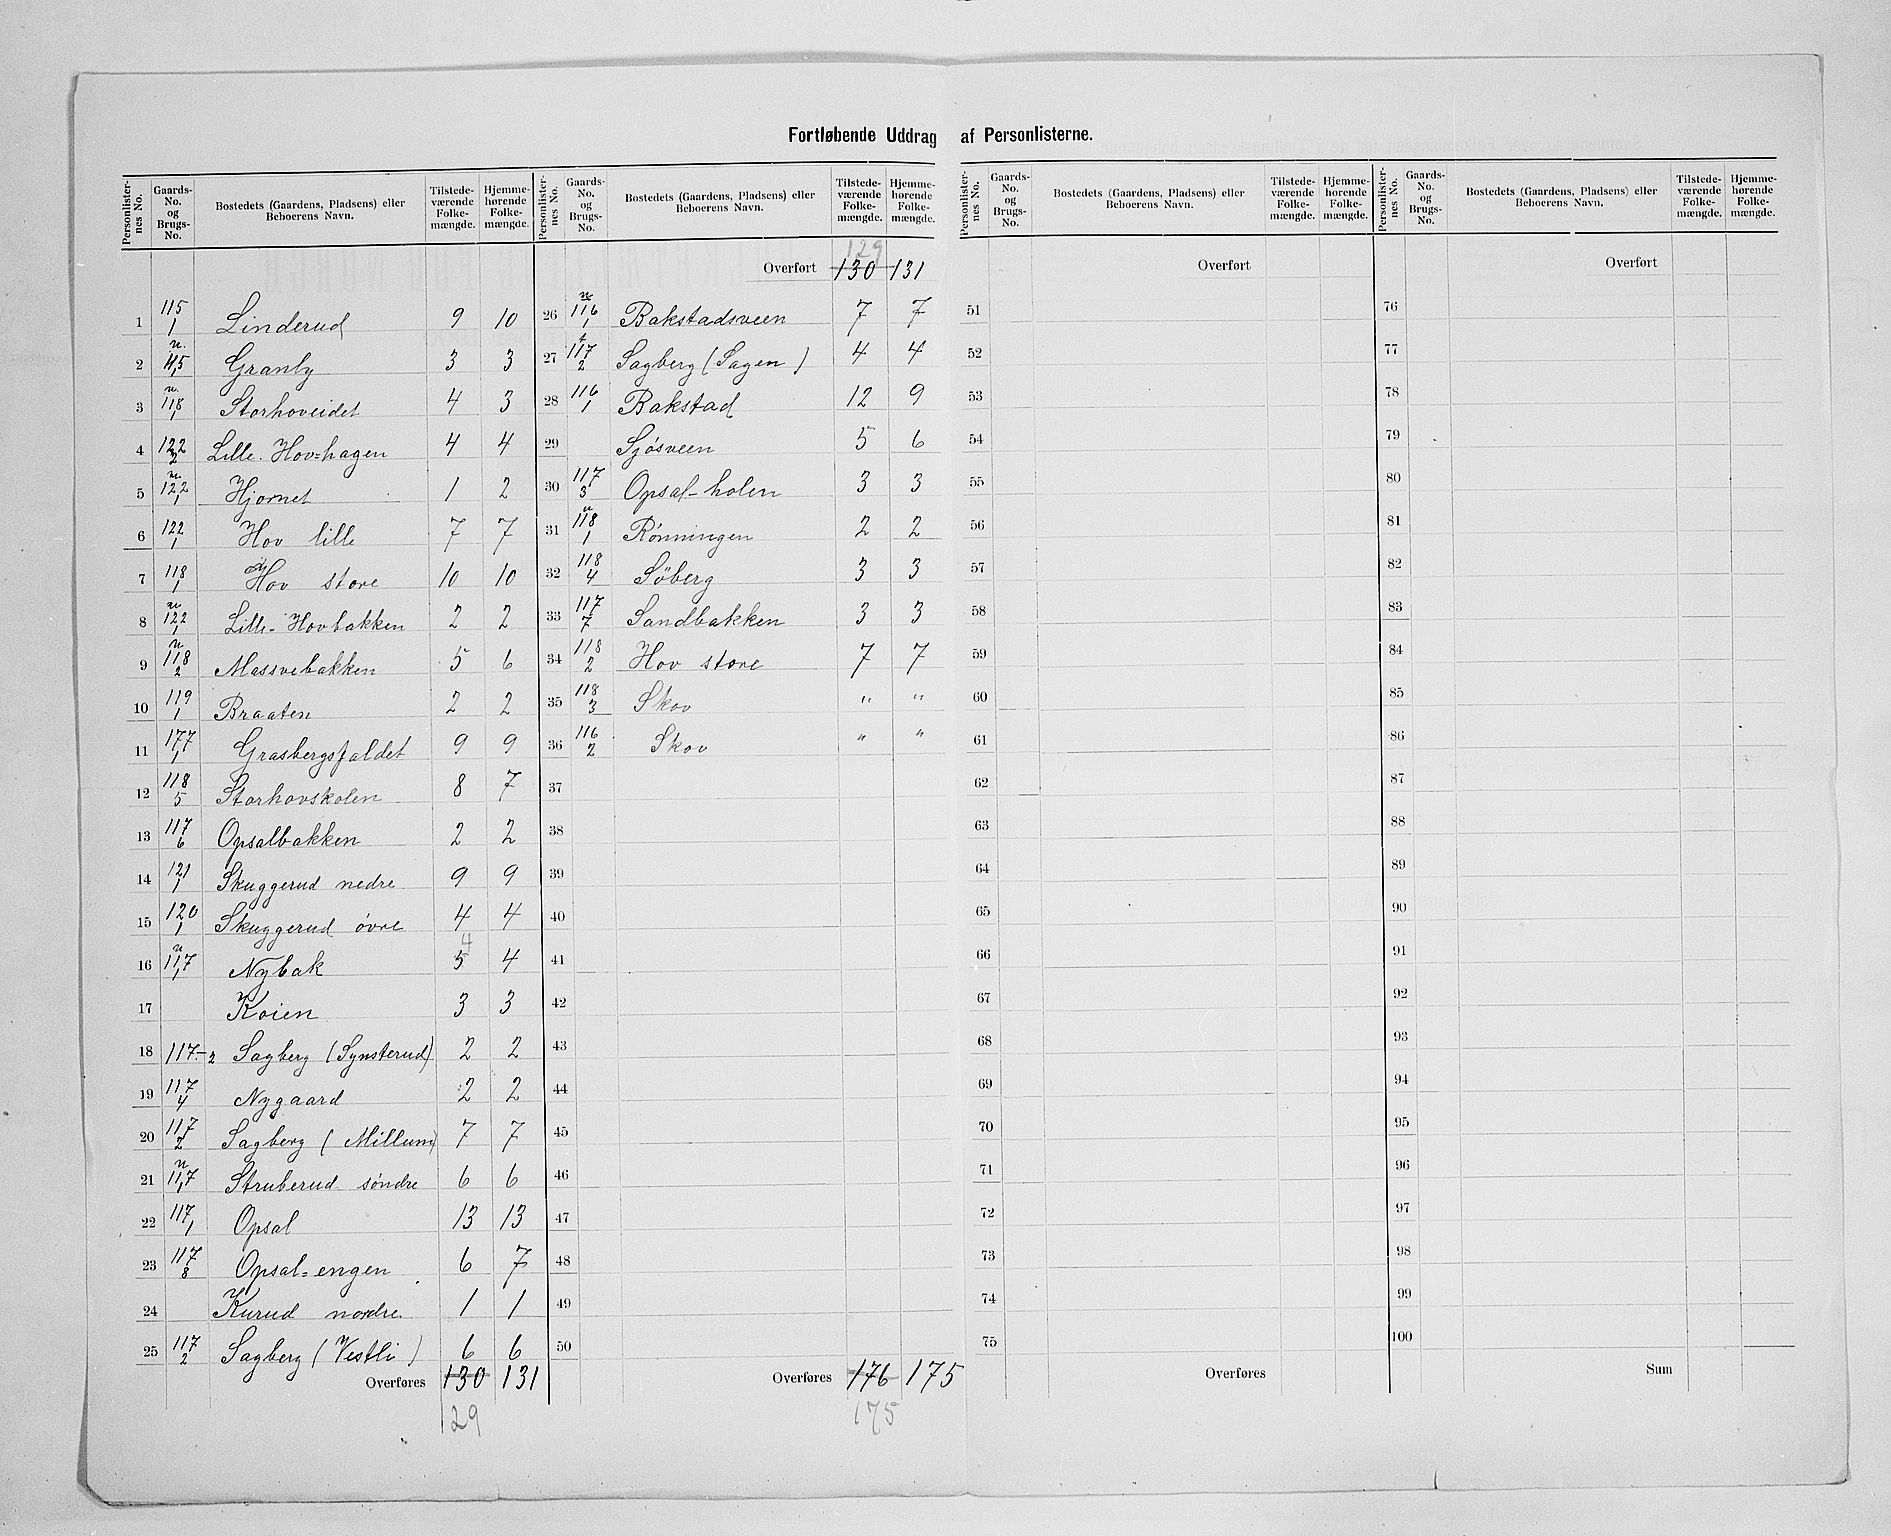 Fortløbende Uddrag af Personlisterne.
Personlister-nes No. | Gaards-No. og Brugs-No. | Bostedets (Gaardens, Pladsens) eller Beboerens Navn. | Tilstede-værende Folke-mængde. | Hjemme-hørende Folke-mængde.
1 115/1 Linderud 9 10
2 n. 115/1 Granly 3 3
3 n. 118/1 Storhoveidet 4 3
4 122/2 Lille. Hov=hagen 4 4
5 n. 122/1 Hjornet 1 2
6 122/1 Hov lille 7 7
7 118/1 Hov store 10 10
8 n 122/1 Lille-Hovbakken 2 2
9 n 118/2 Massvebakken 5 6
10 119/1 Braaten 2 2
11 177/1 Grasbergsfaldet 9 9
12 118/5 Storhovskolen 8 7
13 117/6 Opsalbakken 2 2
14 121/1 Skuggerud nedre 9 9
15 120/1 Skuggerud övre 4 4
16 n 117/1 Nybak 5 4 4
17 Koien 3 3
18 117-2 Sagberg (Synsterud) 2 2
19 117/4 Nygaard 2 2
20 117/2 Sagberg (Millum) 7 7
21 n 117/1 Struberud söndre 6 6
22 117/1 Opsal 13 13
23 117/8 Opsal=engen 6 7
24 Kurud nordre 1 1
25 117/2 Sagberg (Vestli) 6 6
Overføres 130 131
129
Personlister-nes No. | Gaards-No. og Brugs-No. | Bostedets (Gaardens, Pladsens) eller Beboerens Navn. | Tilstede-værende Folke-mængde. | Hjemme-hørende Folke-mængde.
129
Overført 130 131
26 n 116/1 Bakstadsveen 7 7
27 117/2 Sagberg (Sagen) 4 4
28 116/1 Bakstad 12 9
29 Sjösveen 5 6
30 117/3 Opsal-holen 3 3
31 n 118/1 Rönningen 2 2
32 118/4 Söberg 3 3
33 117/7 Sandbakken 3 3
34 118/2 Hov store 7 7
35 118/3 Skov " "
36 116/2 Skov " "
37
38
39
40
41
42
43
44
45
46
47
48
49
50
Overføres 176 175
175
Personlister-nes No. | Gaards-No. og Brugs-No. | Bostedets (Gaardens, Pladsens) eller Beboerens Navn. | Tilstede-værende Folke-mængde. | Hjemme-hørende Folke-mængde.
Overført
51
52
53
54
55
56
57
58
59
60
61
62
63
64
65
66
67
68
69
70
71
72
73
74
75
Overføres
Personlister-nes No. | Gaards-No. og Brugs-No. | Bostedets (Gaardens, Pladsens) eller Beboerens Navn. | Tilstede-værende Folke-mængde. | Hjemme-hørende Folke-mængde.
Overført
76
77
78
79
80
81
82
83
84
85
86
87
88
89
90
91
92
93
94
95
96
97
98
99
100
Sum